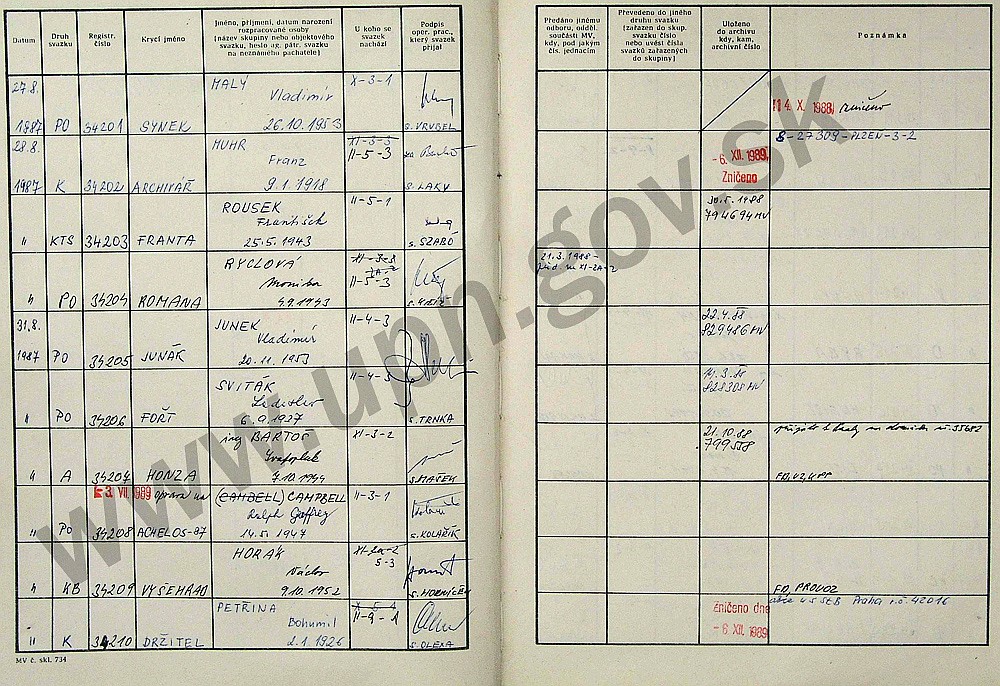 Datum
Druh svazku
Registr. číslo
Krycí jméno
Jméno, příjmení, datum narození
rozpracované osoby
(název skupiny nebo objektového
svazku, heslo ag. pátr. svazku
na neznámého pachatele)
U koho se svazek nachází
Podpis oper. prac., který svazek přijal
Předáno jinému odboru, odděl. součásti MV, kdy, pod jakým čís. jednacím
Převedeno do jiného druhu svazku (zařazen do skup. svazku číslo nebo uvést čísla svazků zařazených do skupiny)
Uloženo do archivu kdy, kam, archivní číslo
Poznámka
27.8. MALÝ X-3-1
Vladimír
1987 PO 34201 SYNEK 26.10.1953 s. VRUBEL
14. X. 1988 zničeno
28.8. MUHR XI-3-3
Franz II-5-3
1987 K 34202 ARCHIVÁŘ 9.1.1918 s. LAKY
S-27309-PLZEN-3-2
-6. XII. 1989
Zničeno
ROUSEK II-5-1
František
" KTS 34203 FRANTA 25.5.1943 s. SZABÓ
30.5.1988
794694 MV
RYCLOVÁ XI-3-3
Monika II-5-3
" PO 34204 ROMANA 4.9.1943
21.3.1988-
XI-2A-2
31.8. JUNEK II-4-3
Vladimír
1987 PO 34205 JUNÁK 20.11.1953
22.4.88
829486 MV
SVITÁK II-4-3
" PO 34206 FOŘT s. TRNKA
828305 MV
ing BARTOŠ XI-3-2
" A 34207 HONZA 7.10.1944 s. MAŠEK
21.10.88
799558
3. VII. 1989 oprava na (CAMBELL) CAMPBELL II-3-1
Ralph Geffrey
" PO 34208 ACHELOS-87 14.5.1947 s. KOLAŘÍK
HORÁK XI-2A-2
Václav 5-3
" KB 34209 VYŠEHRAD 9.10.1952 s. HORNÍČEK
FD, PROVOZ
PETŘINA X-5-1
Bohumil II-9-1
" K 34210 DRŽITEL 2.1.1926 s. OLEXA
StB Praha r.č. 42016
Zničeno dne
-6 XII. 1989
MV č. skl. 734
www.upn.gov.sk